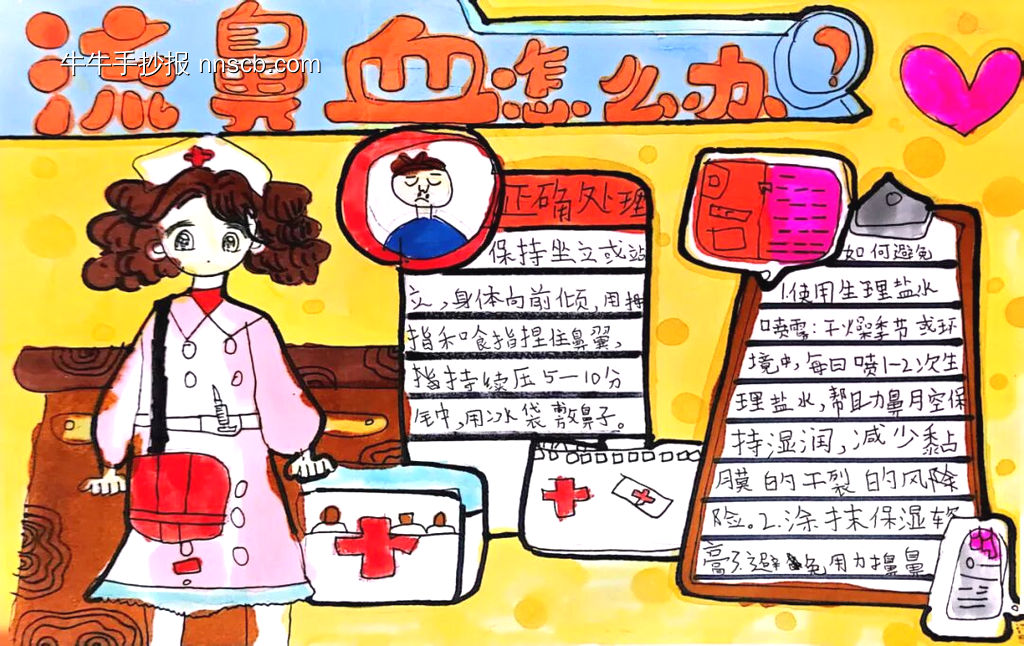 流鼻血怎么办?
牛牛手抄报 nnscb.com
正确处理
保持坐立或站
立,身体向前倾,用拇
指和食指捏住鼻翼,
指持续压5—10分
钟,用冰袋敷鼻子。
如何避免
1.使用生理盐水
喷雾:干燥季节或环
境中,每日喷1-2次生
理盐水,帮助鼻腔保
持湿润,减少黏
膜的干裂的风险
险。2.涂抹保湿软
膏3.避免用力擤鼻